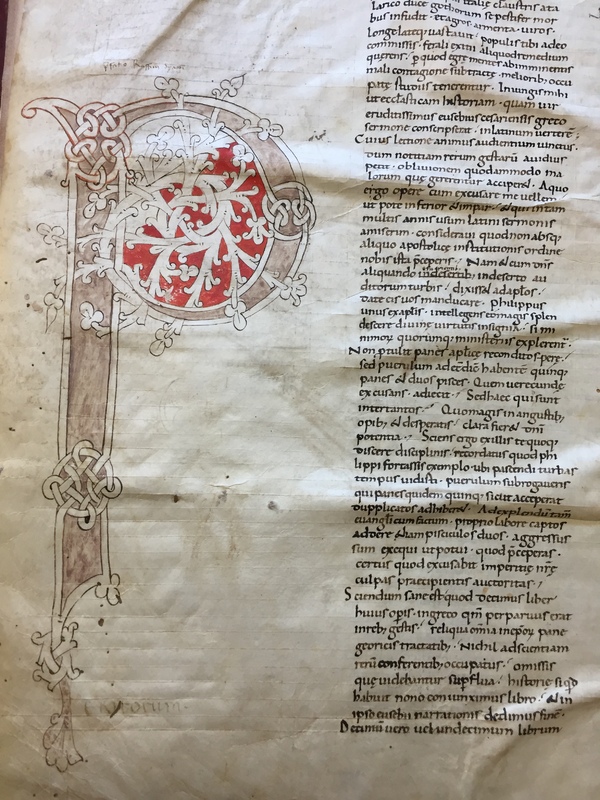 larico duce gothorum se pestifer mor
bus infudit · & agros armenta · uiros ·
longe lateq; uastauit · populis tibi adeo
commissis · feralis exitii aliquod remedium
queȩrens · p quod egrȩ mentes ab imminentis
mali contagione subtracte · meliorib; occu
patȩ studiis tenerentur · Iniungis mihi
ut ecclesiasticam historiam · quam uir
eruditissimus eusebius cesariensis greco
sermone conscripserat · in latinum uerterem ;
Cuius lectione animus audientium uinctus ·
dum notitiam rerum gestarum auidius
petit · obliuionem quodammodo ma
lorum que gererentur acciper& · A quo
ergo opere cum excusare me uellem
ut pote inferior & impar · & qui in tam
multis annis usum latini sermonis
amiserim · consideraui quod non absq;
aliquo apostolice institutionis ordine
nobis ista pceperis · Nam & cum dns
aliquando in deserto esurientib; au
ditorum turbis · dixiss& ad aplos ·
date eis uos manducare · philippus
unus ex aplis · intellegens eo magis splen
descere diuine uirtutis insignia · si mi
nimorum quorumq; ministeriis explerent ·
Non ptulit panes aplice recondito s pere
sed puerulum adee dicit habentem quinq;
panes & duos pisces · Quem uerecunde
excusans · adiecit · Sed hec qui sunt
inter tantos · Quo magis in angustib;
opib; & desperatis · clara fier& dni
potentia · Sciens ergo ex illis te quoq;
discere disciplinis · recordatus quod phi
lippi fortassis exemplo · ubi pascendi turbas
tempus uidisti · puerulum subrogaueris
qui panes quidem quinq; sicut acceperat
dupplicatos adhiber& · Ad explendum tam
euangelicum factum · proprio labore captos
adder& etiam pisciculos duos · aggressus
sum exequi ut potui · quod pceperas ·
certus quod excusabit imperitie nre
culpas praecipientis auctoritas ·
Sciendum sane est quod decimus liber
huius opis · in greco qm per parum erat
in reb; gestis · reliqua omnia in epor pane
georicis tractatib; · Nichil ad scientiam
rerum conferentib; occupatus · omissis
que uidebantur superflua · historie si qd
habuit nono coniunximus libro · & in
ipso eusebii narrationi dedimus fine ·
Decimum uero uel undecimum librum
ERITORUM ·